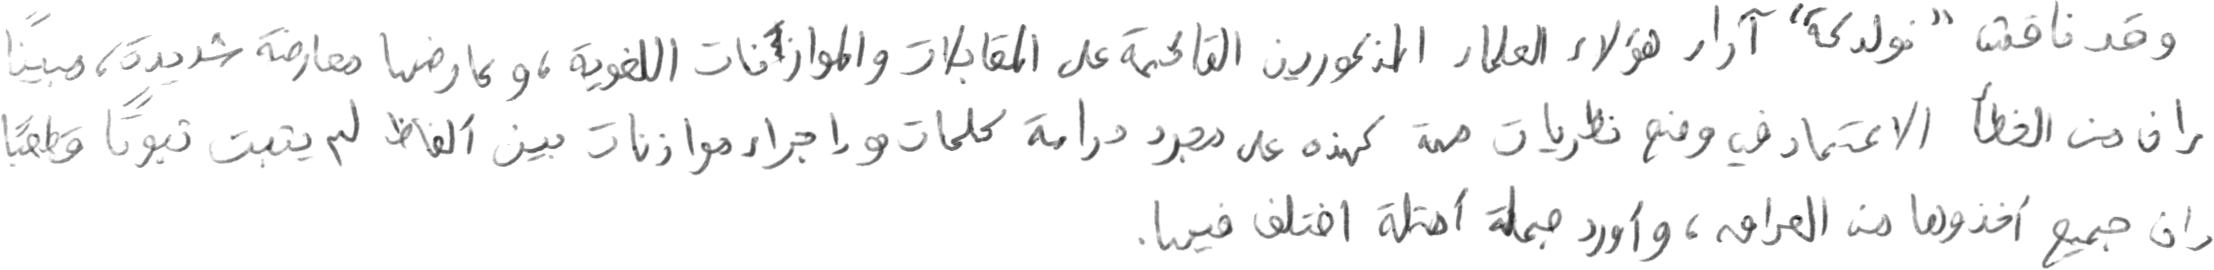 وقد ناقش "نولدكة" آراء هؤلاء العلماء المذكورين القائمة على المقابلات والموازنات اللغوية، وعارضها معارضة شديدة، مبينًا
ان من الخطأ الاعتماد في وضع نظريات مهمة كهذه على مجرد دراسة كلمات واجراء موازنات بين ألفاظ لم يثبت ثبوتًا قطعيًا
ان جميع أخذوها من العراق، وأورد جملة أمثلة اختلف فيها.